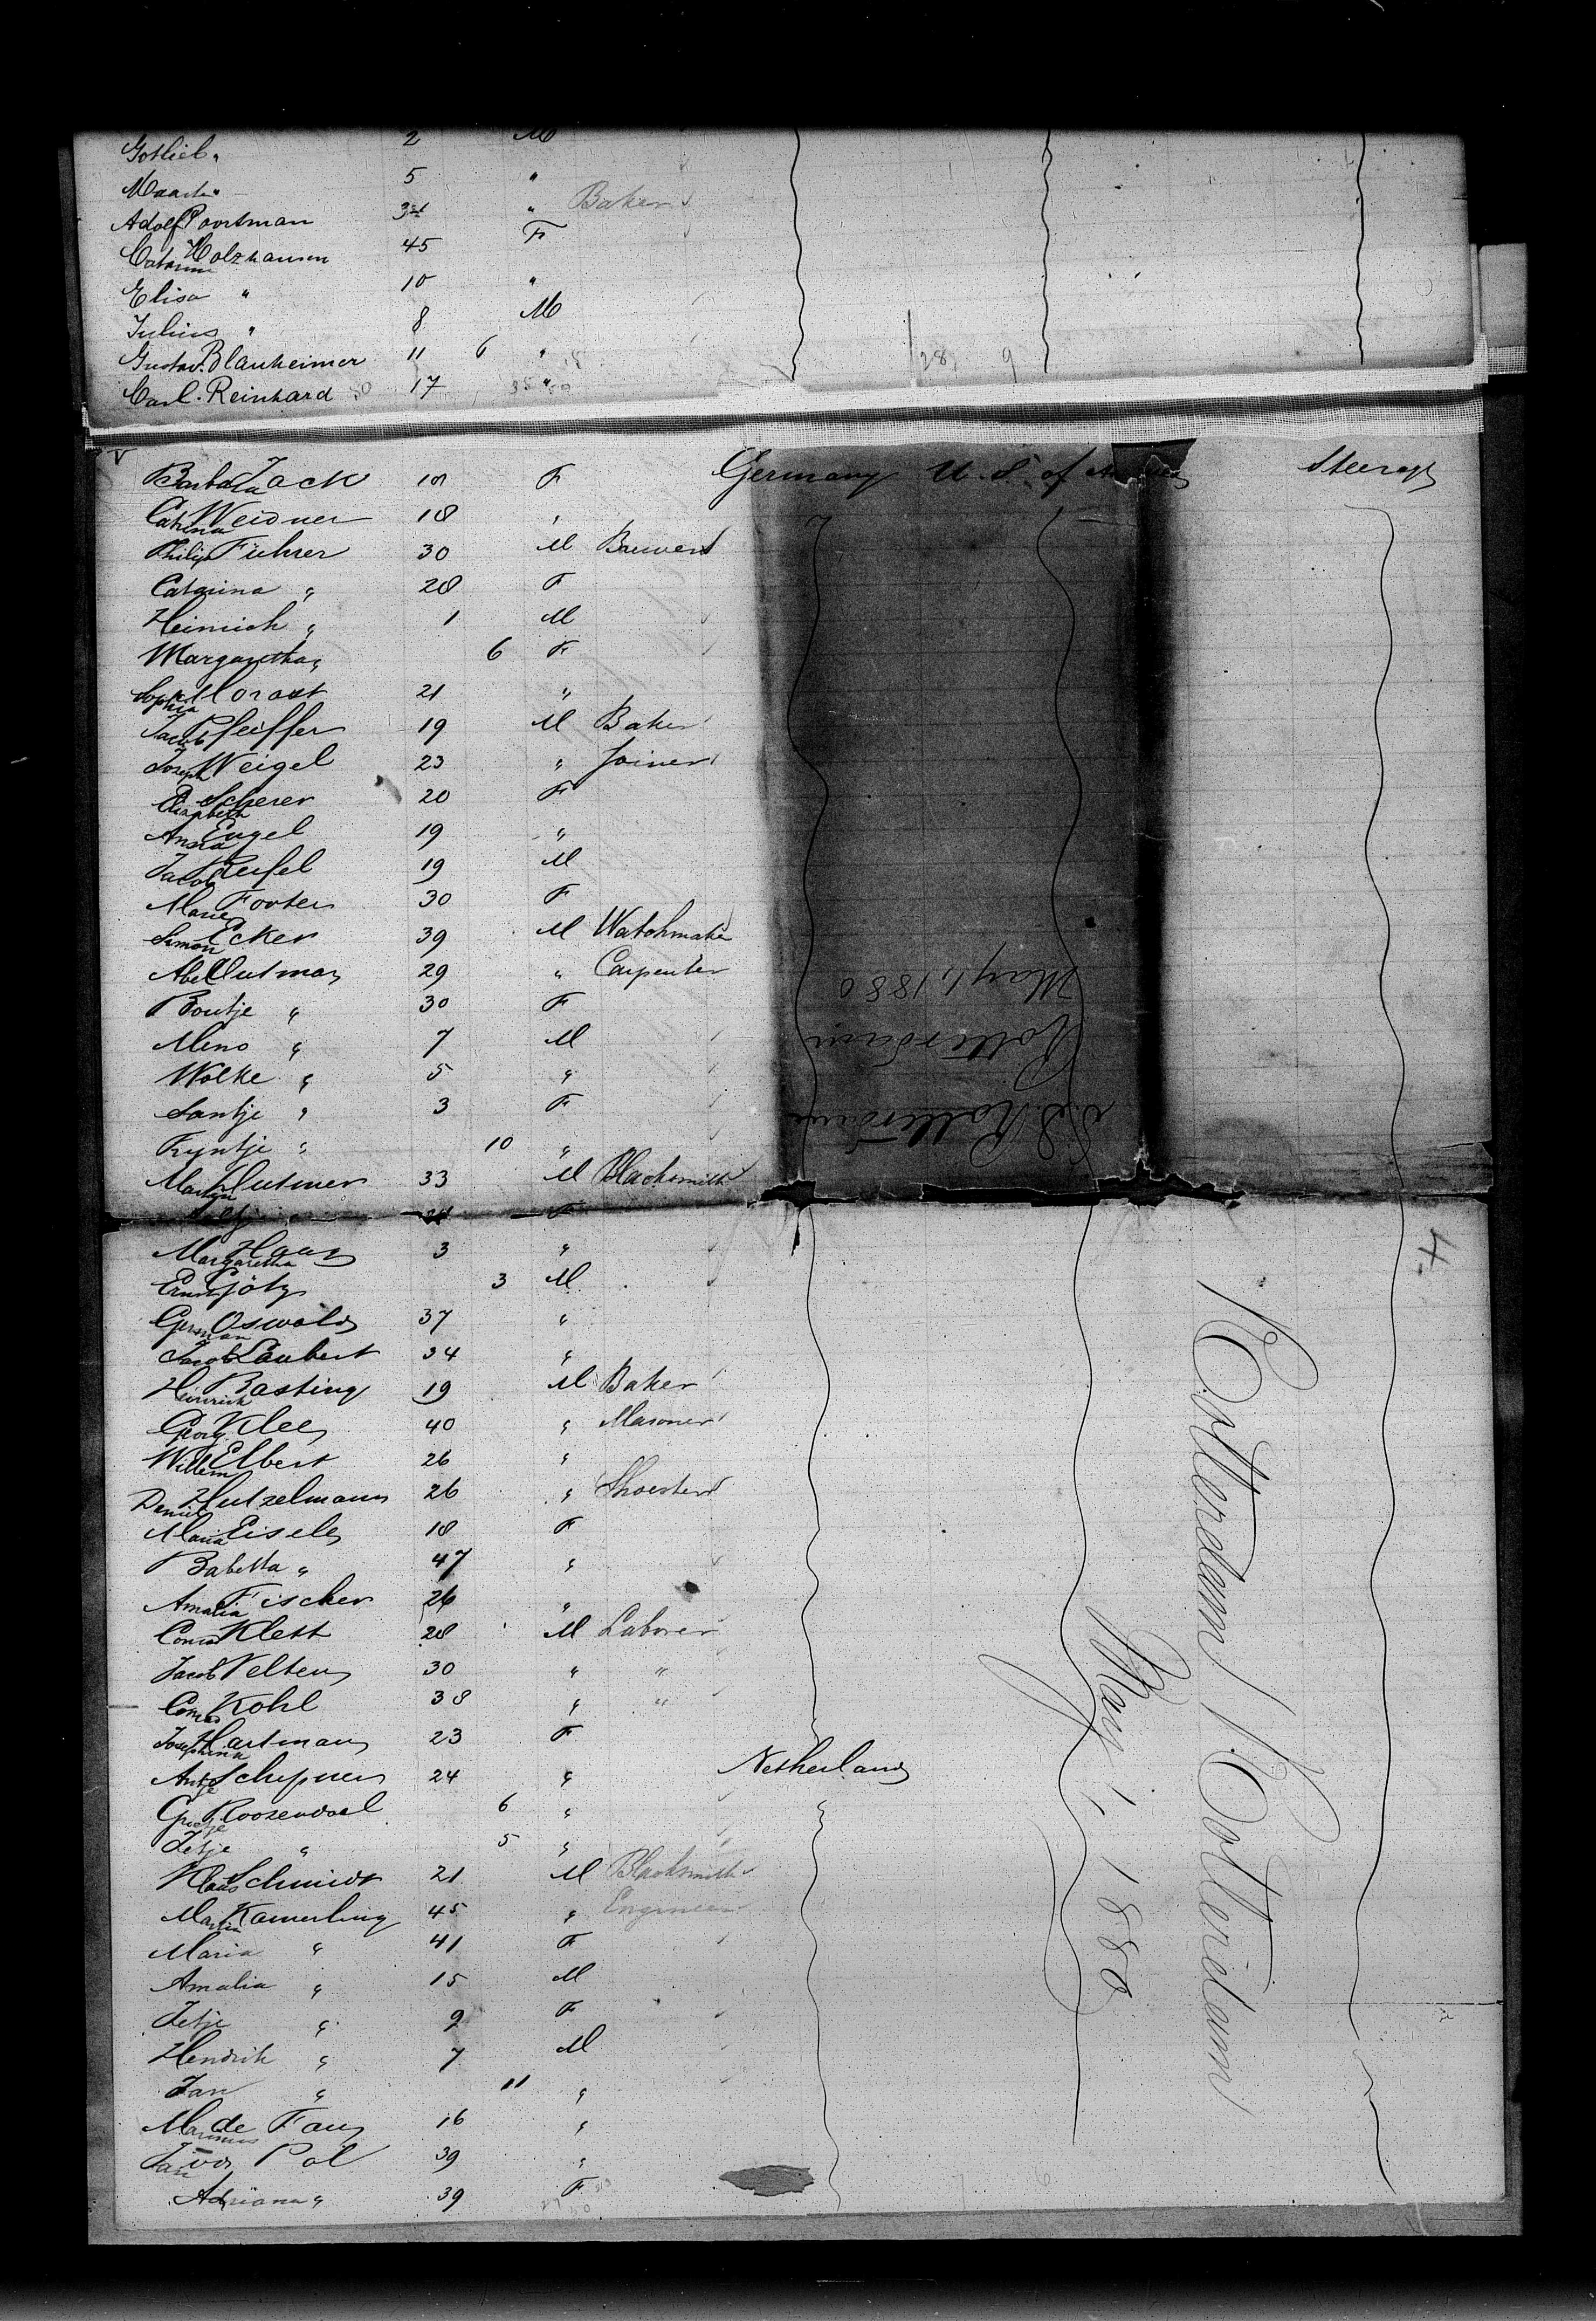 Gotlieb " 2 M
Maarte " 5 "
Adolf Poortman 34 " Baker
Catarina Holzhausen 45 F
Elisa " 10 "
Julius " 8 M
Gustav. Blauheimer 11 6 "
Carl. Reinhard 17 "
28 9
Barbara Zack 18 F Germany U. S. of Steerage
Catrina Weidner 18 "
Philip Führer 30 M Brewer
Catarina " 28 F
Heinrich " 1 M
Margaretha " 6 F
Sophia Horast 21 "
Jacob Pfeiffer 19 M Baker
Joseph Weigel 23 " Joiner
Elisabeth Scherer 20 F
Anna Engel 19 "
Jacob 19 M
Marie 30 F
Simon Ecker 39 M Watchmaker
Abel Hutman 29 " Carpenter
Boutje " 30 F
Meno " 7 M
Wolke " 5 "
Santje " 3 F
Tryntje " 10 "
Martyn Hutmer 33 M Blacksmith
F
Margaretha Haas 3 "
Ernst Götz 3 M
German Oswald 37 "
Jacob Laubert 34 "
Heinrich Basting 19 M Baker
Georg Klee 40 " Masoner
Willem Elbert 26 "
Daniel Hutzelmann 26 "
Maria Eisele 18 F
Babetta " 47 "
Amalia Fischer 26 "
Conrad Klett 28 M Laborer
Jacob Velten 30 " "
Conrad Kohl 38 " "
Josephina Hartman 23 F
Antje Schipner 24 " Netherland
Grietje Roosendaal 6 "
Jetje " 5 "
Klaas Schmidt 21 M Blacksmith
Martin Kamerling 45 " Engineer
Maria " 41 F
Amalia " 15 M
Jetje " 9 F
Hendrik " 7 M
Jan " 11 "
Marinus de Fauz 16 "
Jan vd Pol 39 "
Adriana " 39 F
S.S. Rotterdam
Rotterdam
May 1, 1880
4.
Rotterdam / Rotterdam
May 1, 1880